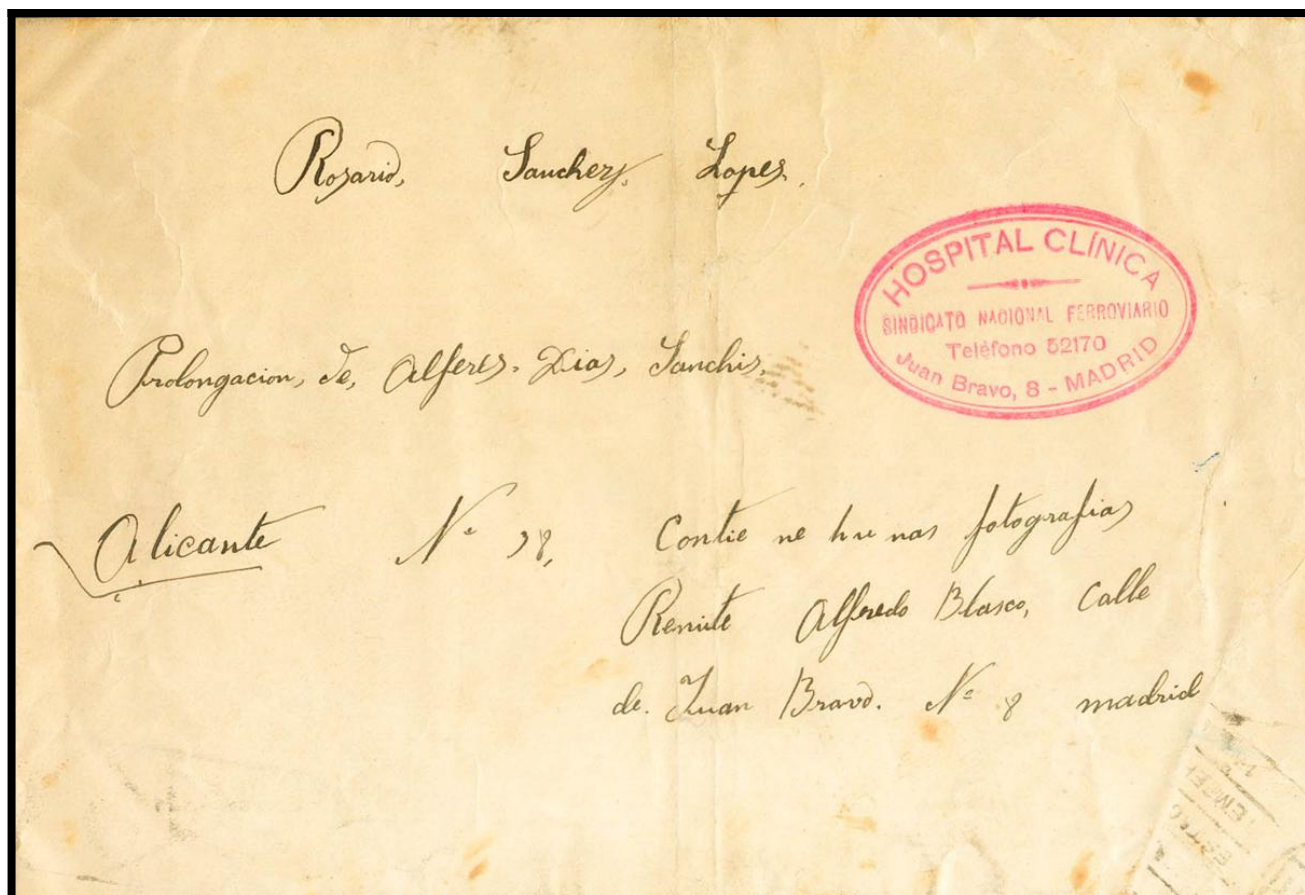 Rosario, Sanchez, Lopes.
HOSPITAL CLÍNICA
SINDICATO NACIONAL FERROVIARIO
Teléfono 52170
Juan Bravo, 8 - MADRID
Prolongacion, de, Alferes. Dias, Sanchis,
Alicante Nº 38,
Contie ne hu nas fotografias
Remite Alfredo Blasco, Calle
de. Juan Bravo. Nº 8 madrid